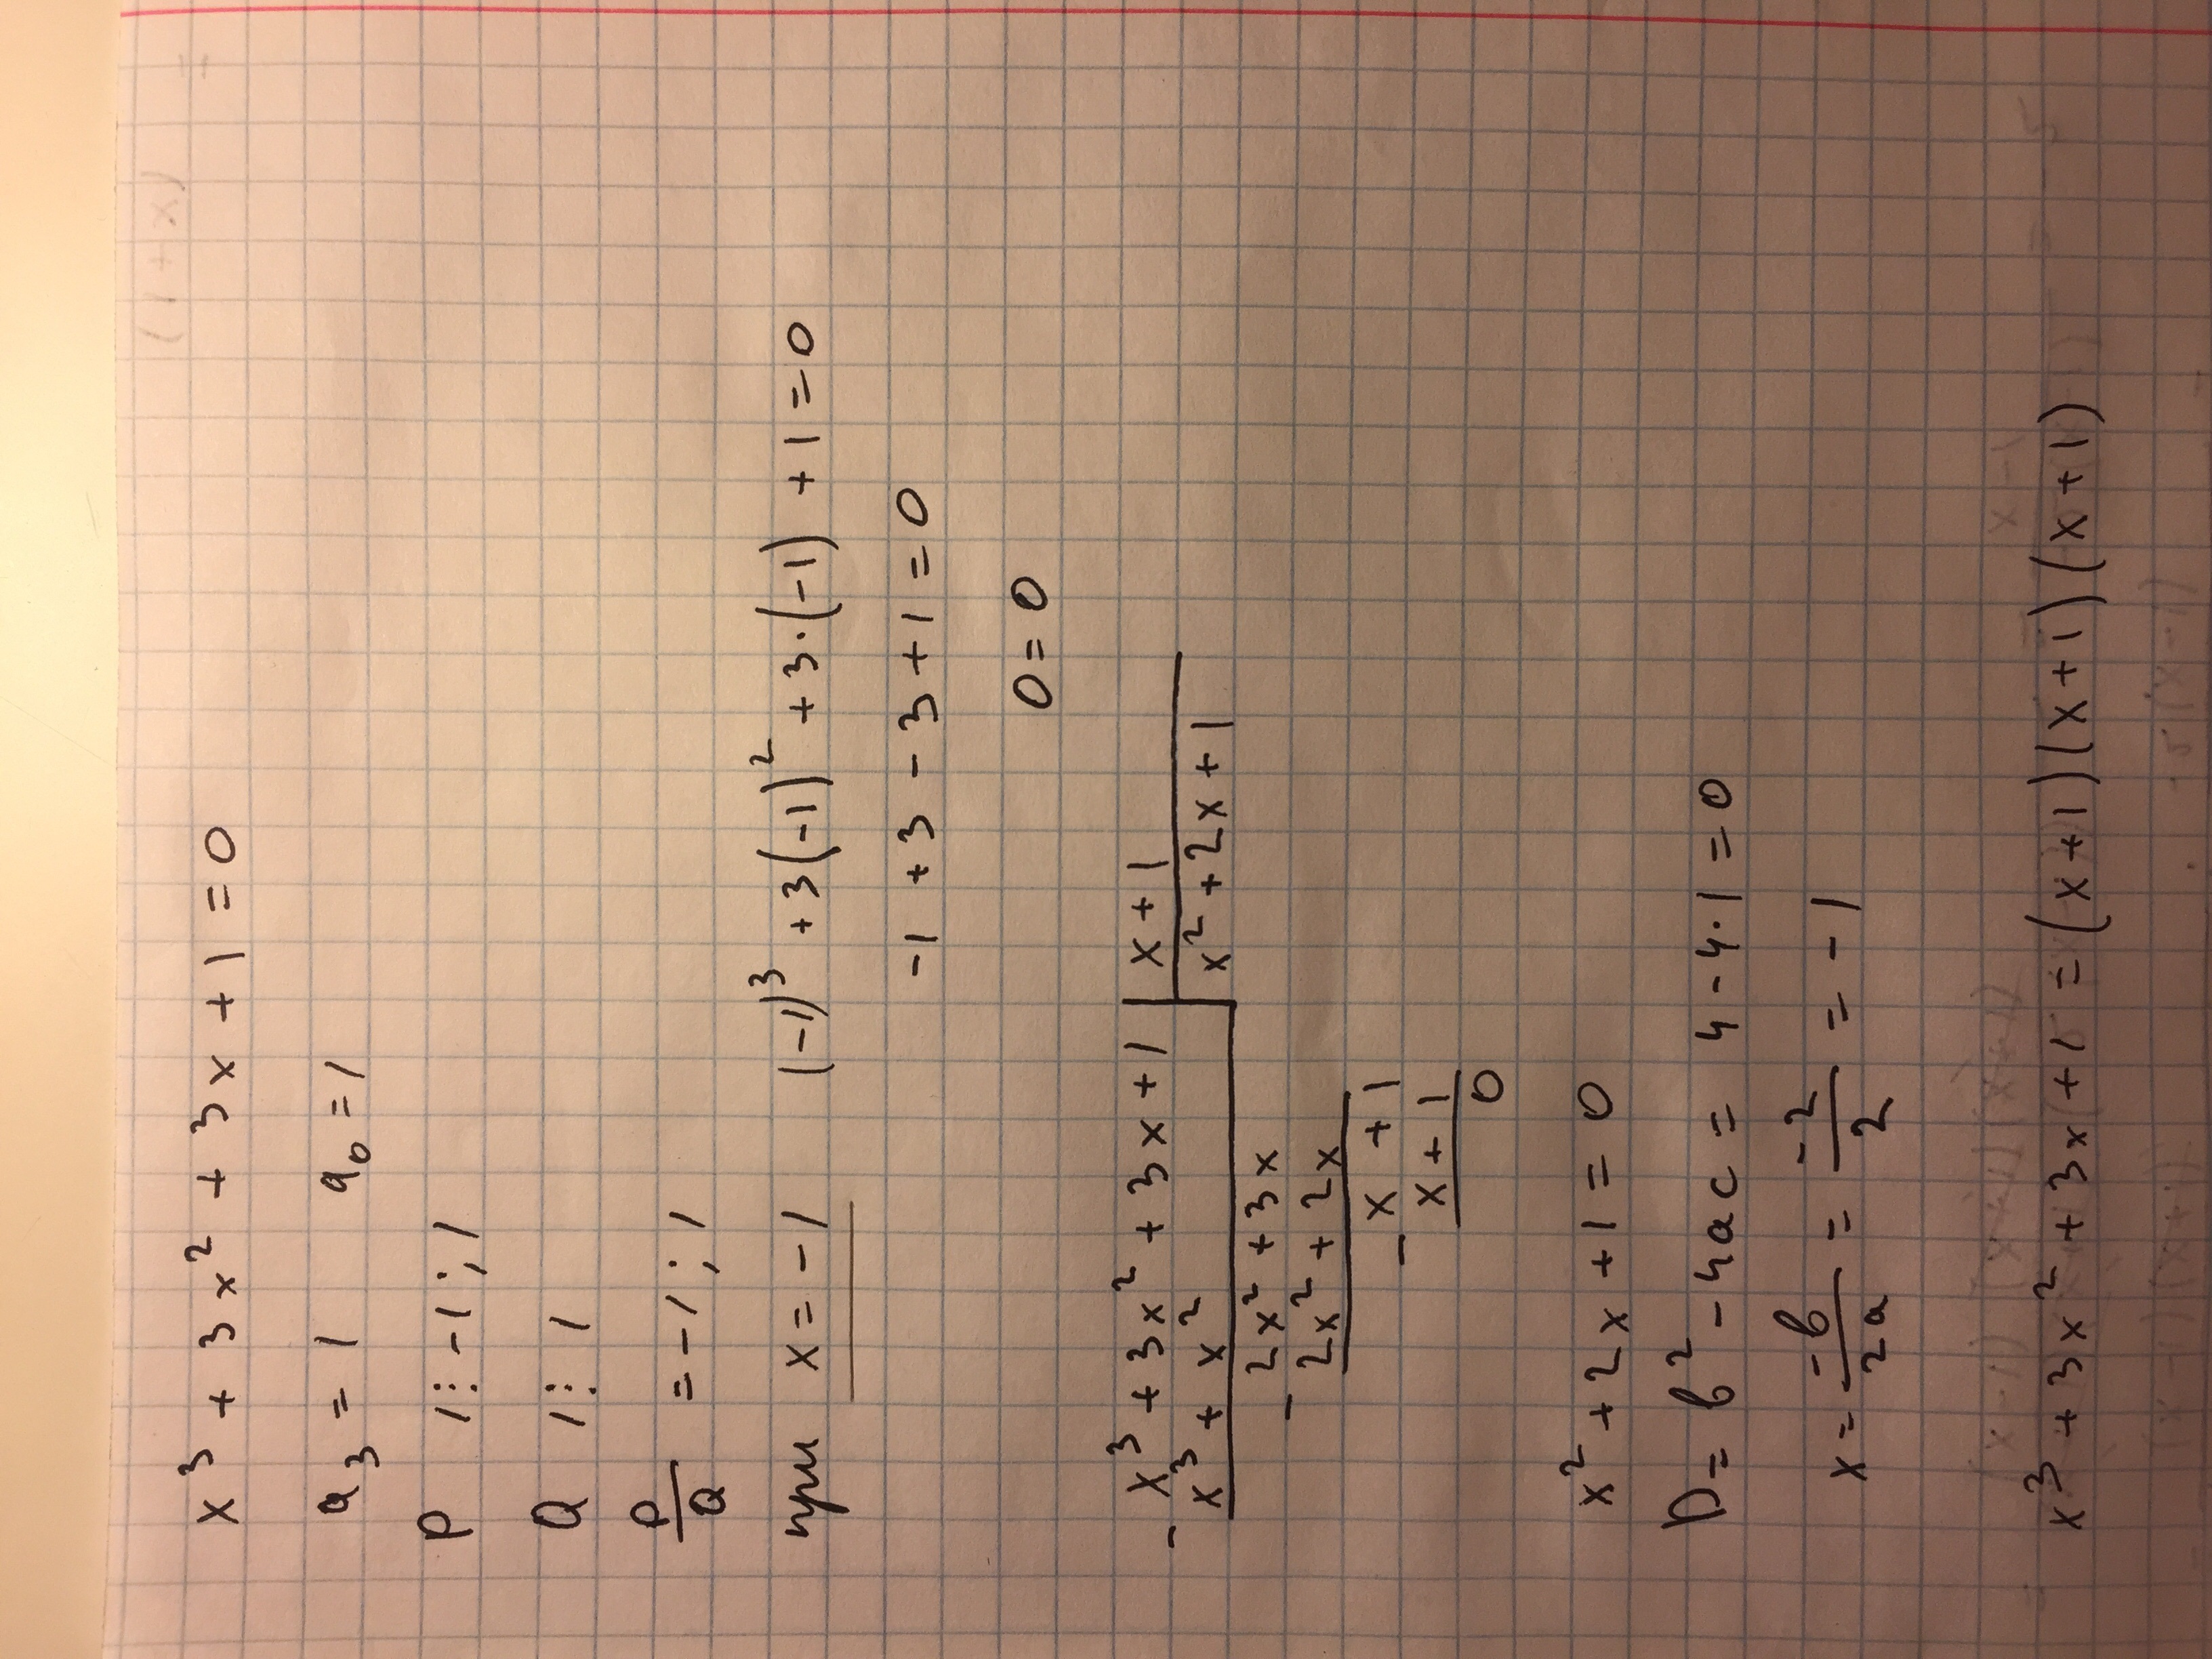 x³ + 3x² + 3x + 1 = 0
a₃ = 1 a₀ = 1
P 1⋮ -1; 1
Q 1⋮ 1
P/Q = -1; 1
при x = -1 (-1)³ + 3(-1)² + 3·(-1) + 1 = 0
-1 + 3 - 3 + 1 = 0
0 = 0
- x³ + 3x² + 3x + 1 | x + 1
x³ + x² | x² + 2x + 1
- 2x² + 3x
2x² + 2x
- x + 1
x + 1
0
x² + 2x + 1 = 0
D = b² - 4ac = 4 - 4·1 = 0
x = -b/2a = -2/2 = -1
x³ + 3x² + 3x + 1 = (x+1)(x+1)(x+1)